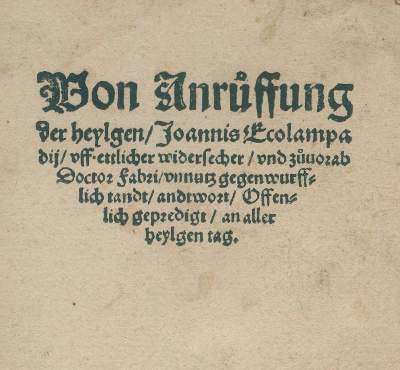 Von Anrůffung
der heylgen/ Joannis Ecolampa
dij/ vff ettlicher widersecher/ vnd zůuorab
Doctor Fabri/ vnnutz gegenwurff⸗
lich tandt/ andtwort/ Offen⸗
lich gepredigt/ an aller
heylgen tag.